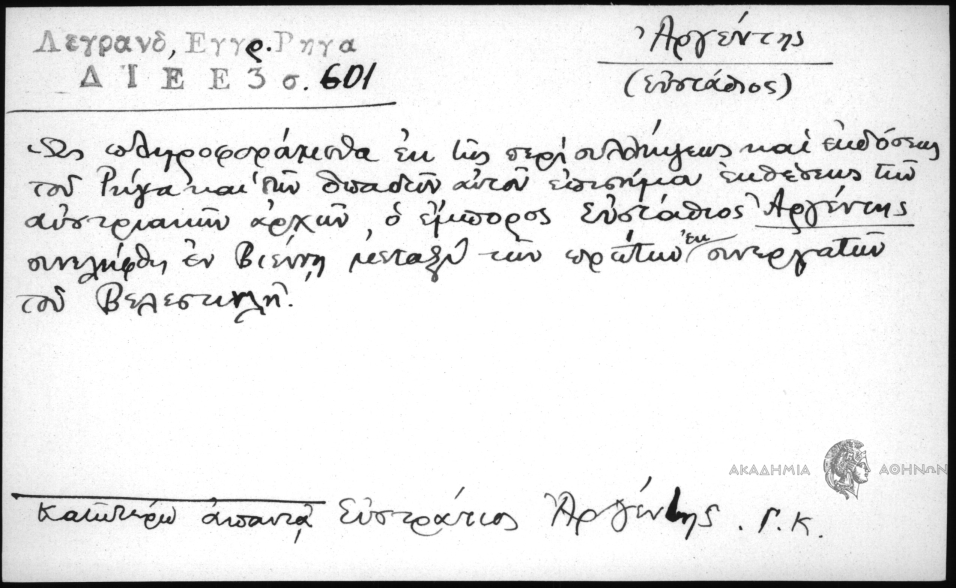 Λεγρανδ, Εγγρ. Ρηγα
Δ Ι Ε Ε 3 σ. 601
Ἀργέντης
(Εὐστάθιος)
Ὡς πληροφορούμεθα ἐκ τῆς περὶ συλλήψεως καὶ ἐκδόσεως
τοῦ Ρήγα καὶ τῶν ὀπαδῶν αὐτοῦ ἐπισήμου ἐκθέσεως τῶν
αὐστριακῶν ἀρχῶν, ὁ ἔμπορος Εὐστάθιος Ἀργέντης
συνελήφθη ἐν Βιέννῃ μεταξὺ τῶν πρώτων ἐκ συνεργατῶν
τοῦ Βελεστινλῆ.
ΑΚΑΔΗΜΙΑ ΑΘΗΝΩΝ
κατωτέρω ἀπαντᾷ Εὐστράτιος Ἀργέντης. Γ. Κ.